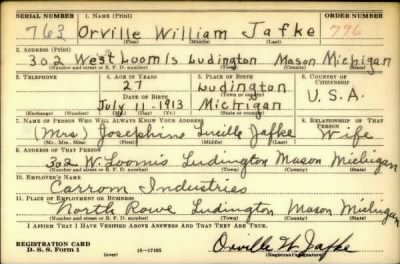 SERIAL NUMBER 1. NAME (Print) ORDER NUMBER
763 Orville William Jafke 796
(First) (Middle) (Last)
2. ADDRESS (Print)
302 West Loomis Ludington Mason Michigan
(Number and street or R. F. D. number) (Town) (County) (State)
3. TELEPHONE 4. AGE IN YEARS 5. PLACE OF BIRTH 6. COUNTRY OF CITIZENSHIP
27 Ludington
DATE OF BIRTH (Town or county)
July 11-1913 Michigan U.S.A.
(Exchange) (No.) (Mo.) (Day) (Yr.) (State or country)
7. NAME OF PERSON WHO WILL ALWAYS KNOW YOUR ADDRESS 8. RELATIONSHIP OF THAT PERSON
(Mrs) Josephine Lucille Jafke Wife
(Mr., Mrs., Miss) (First) (Middle) (Last)
9. ADDRESS OF THAT PERSON
302 W. Loomis Ludington Mason Michigan
(Number and street or R. F. D. number) (Town) (County) (State)
10. EMPLOYER'S NAME
Carrom Industries
11. PLACE OF EMPLOYMENT OR BUSINESS
North Rowe Ludington Mason Michigan
(Number and street or R. F. D. number) (Town) (County) (State)
I AFFIRM THAT I HAVE VERIFIED ABOVE ANSWERS AND THAT THEY ARE TRUE.
REGISTRATION CARD
D. S. S. Form 1 (over) 16-17105 Orville W. Jafke
(Registrant's signature)